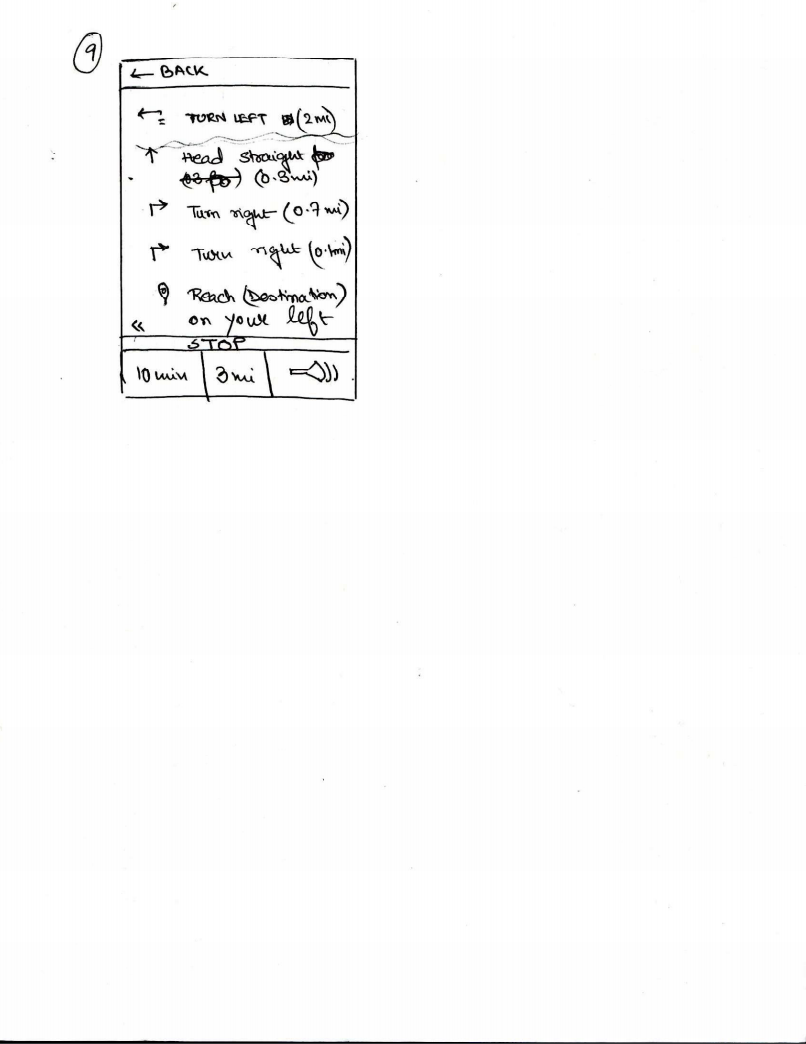 9
← BACK
TURN LEFT (2 MI)
↑ Head straight
(0.3 mi)
Turn right (0.7 mi)
Turn right (0.1mi)
Reach (Destination)
<< on your left
STOP
10 min 3 mi